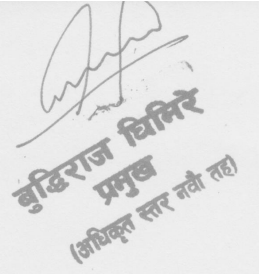 बुद्धिराज घिमिरे
प्रमुख
(अधिकृत स्तर नवौं तह)